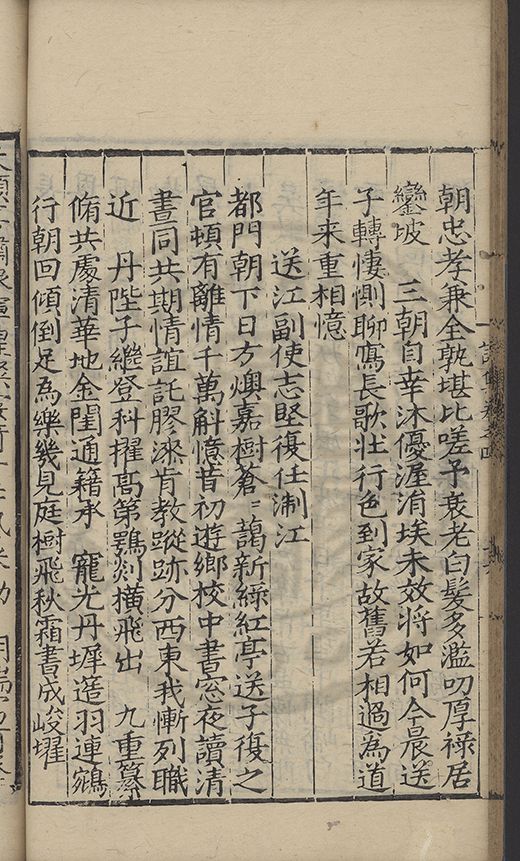 朝忠孝兼全孰堪比嗟予衰老白髮多濫叨厚祿居
鑾坡　三朝自幸沐優渥涓埃未效將如何今晨送
子轉悽惻聊寫長歌壯行色到家故舊若相過為道
年来重相憶
送江副使志堅復任淛江
都門朝下日方燠嘉樹蒼〻藹新綠紅亭送子復之
官頓有離情千萬斛憶昔初遊鄉校中書窓夜讀清
晝同共期情誼託膠漆肯教蹤跡分西東我慚列職
近　丹陛子繼登科擢高第鶚剡横飛出　九重篡
脩共處清華地金閨通籍承　寵光丹墀簉羽連鵷
行朝回傾倒足為樂幾見庭樹飛秋霜書成峻擢